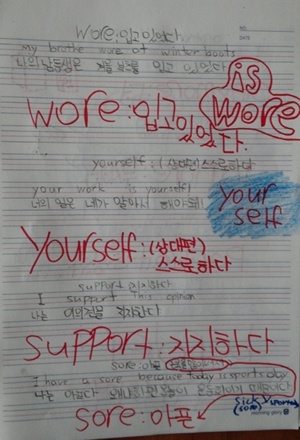 wore:입고있었다
my brothe wore at winter boots
나의 남동생은 겨울 부츠를 입고 있었다
is
wore
wore:입고있었다.
yourself:(상대편)스스로하다
your work is yourself!
너의 일은 네가 알아서 해야돼!
your
self
Yourself:(상대편)
스스로하다
support:지지하다
I support this opinion
나는 이의견을 지지한다
support:지지하다
sore:아픈
I have a sore because today is sports day
나는 아프다 왜냐하면 오늘이 운동회이기 때문이다
sick
sore
sore:아픈
morning glory